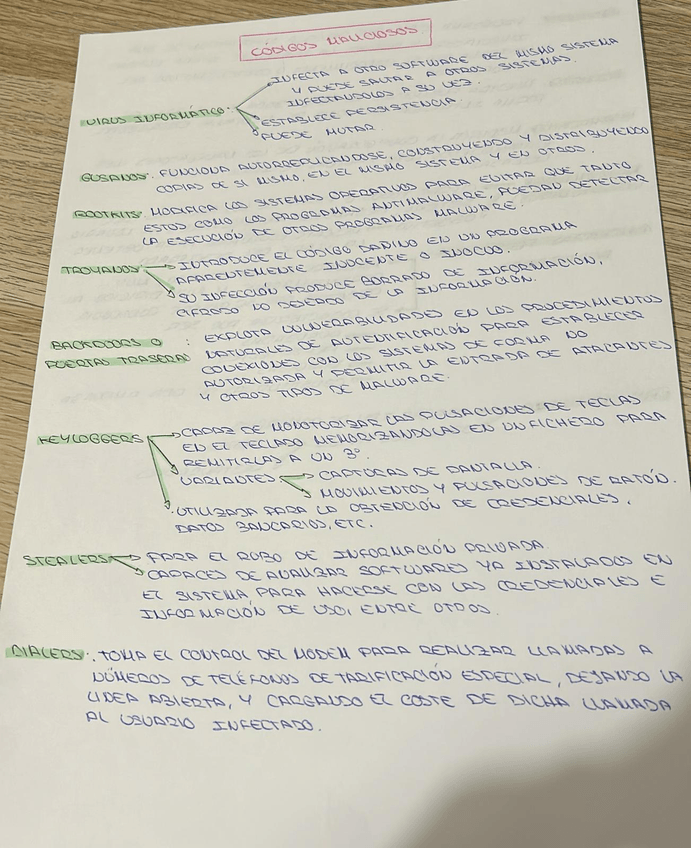 CÓDIGOS MALICIOSOS
INFECTA A OTRO SOFTWARE DEL MISMO SISTEMA
Y PUEDE SALTAR A OTROS SISTEMAS.
INFECTANDOLOS A SU VEZ.
VIRUS INFORMÁTICO:
ESTABLECE PERSISTENCIA.
PUEDE MUTAR.
GUSANOS: FUNCIONA AUTORREPLICANDOSE, CONSTRUYENDO Y DISTRIBUYENDO
COPIAS DE SI MISMO, EN EL MISMO SISTEMA Y EN OTROS.
ROOTKITS: MODIFICA LOS SISTEMAS OPERATIVOS PARA EVITAR QUE TANTO
ESTOS COMO LOS PROGRAMAS ANTIMALWARE, PUEDAN DETECTAR
LA EJECUCIÓN DE OTROS PROGRAMAS MALWARE.
TROYANOS → INTRODUCE EL CÓDIGO DAÑINO EN UN PROGRAMA
APARENTEMENTE INOCENTE O INOCUO.
SU INFECCIÓN PRODUCE BORRADO DE INFORMACIÓN,
CIFRADO NO DESEADO DE LA INFORMACIÓN.
BACKDOORS O : EXPLOTA VULNERABILIDADES EN LOS PROCEDIMIENTOS
PUERTAS TRASERAS NATURALES DE AUTENTIFICACIÓN PARA ESTABLECER
CONEXIONES CON LOS SISTEMAS DE FORMA NO
AUTORIZADA Y PERMITIR LA ENTRADA DE ATACANTES
Y OTROS TIPOS DE MALWARE.
KEYLOGGERS → CAPAZ DE MONOTORIZAR LAS PULSACIONES DE TECLAS
EN EL TECLADO MEMORIZANDOLAS EN UN FICHERO PARA
REMITIRLAS A UN 3º.
VARIANTES → CAPTURAS DE PANTALLA.
MOVIMIENTOS Y PULSACIONES DE RATÓN.
UTILIZADA PARA LA OBTENCIÓN DE CREDENCIALES,
DATOS BANCARIOS, ETC.
STEALERS → PARA EL ROBO DE INFORMACIÓN PRIVADA.
CAPACES DE ANALIZAR SOFTWARES YA INSTALADOS EN
EL SISTEMA PARA HACERSE CON LAS CREDENCIALES E
INFORMACIÓN DE USO, ENTRE OTROS.
DIALERS: TOMA EL CONTROL DEL MODEM PARA REALIZAR LLAMADAS A
NÚMEROS DE TELÉFONOS DE TARIFICACIÓN ESPECIAL, DEJANDO LA
LINEA ABIERTA, Y CARGANDO EL COSTE DE DICHA LLAMADA
AL USUARIO INFECTADO.